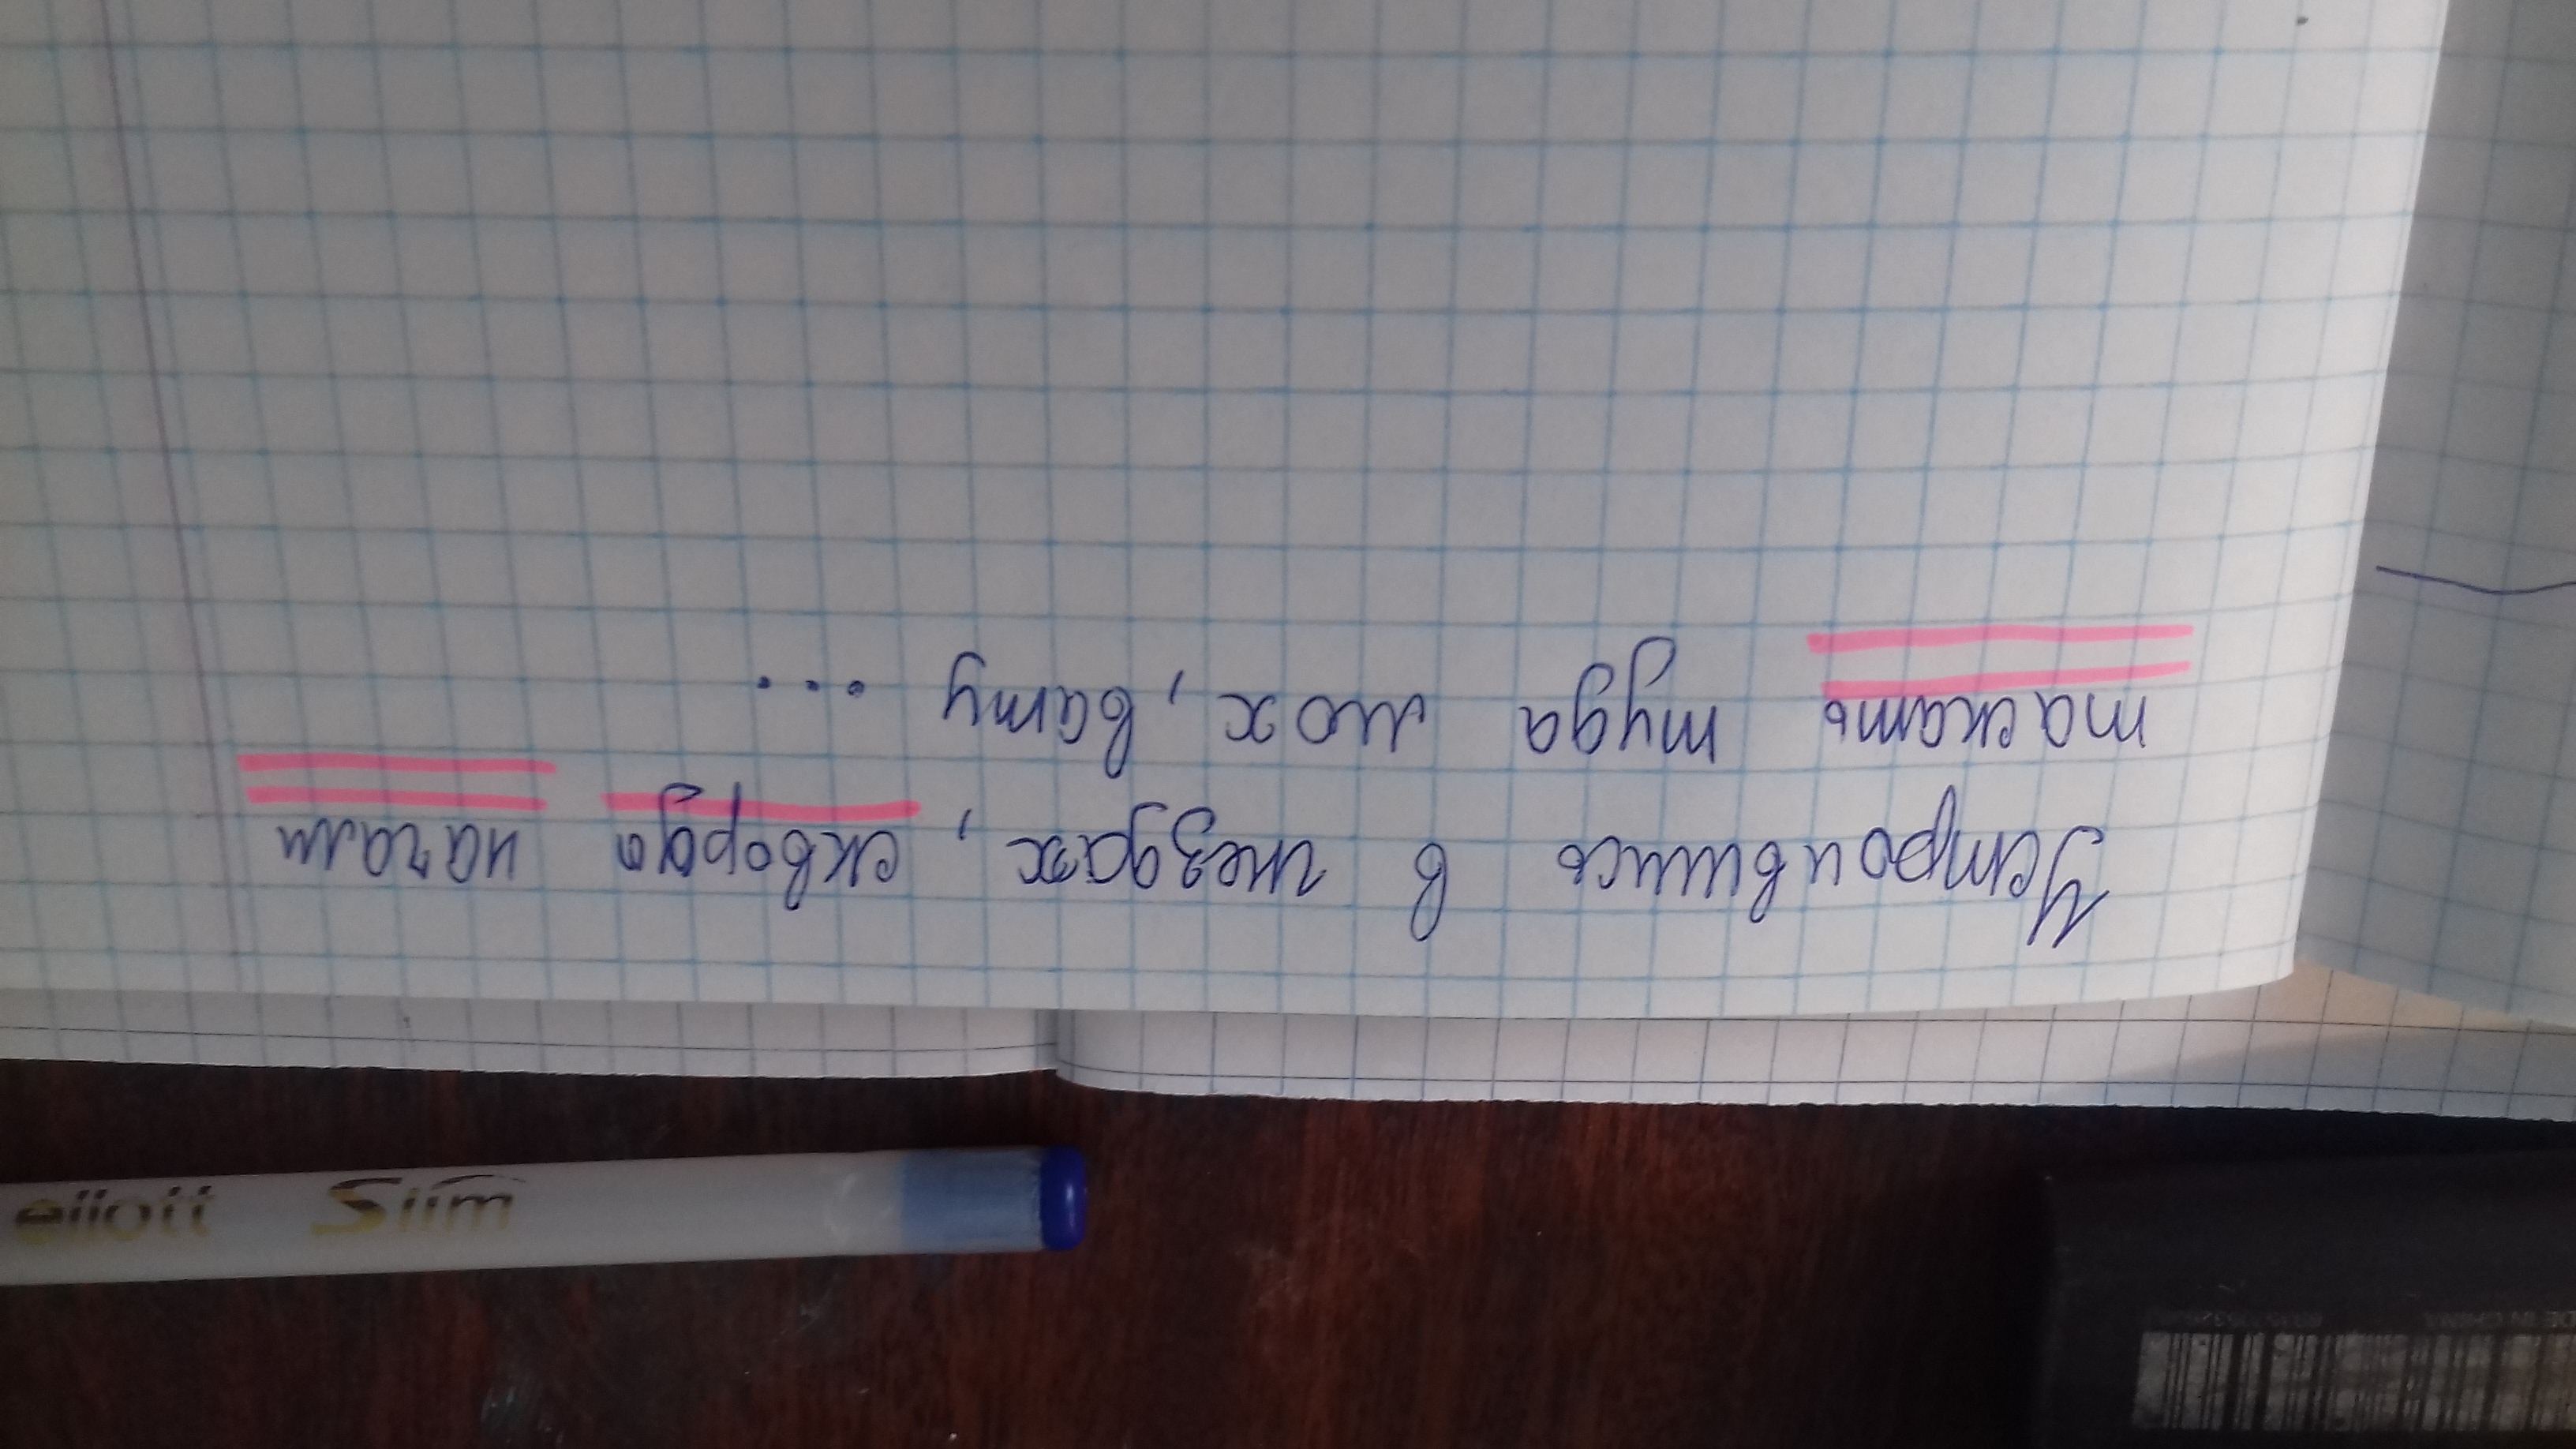 Устроившись в гнездах, скворцы начали
таскать туда мох, вату ...
eiiott Siim